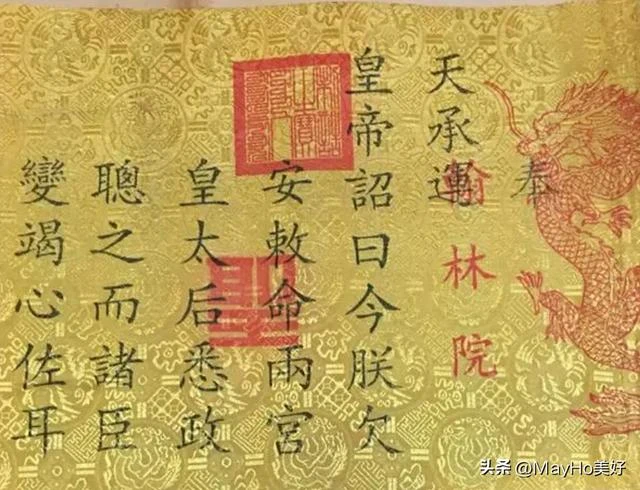 奉
天承運
皇帝詔曰今朕欠
安敕命兩宮
皇太后悉政
聰之而諸臣
變竭心佐耳
翰林院
聖
头条 @MayHo美好